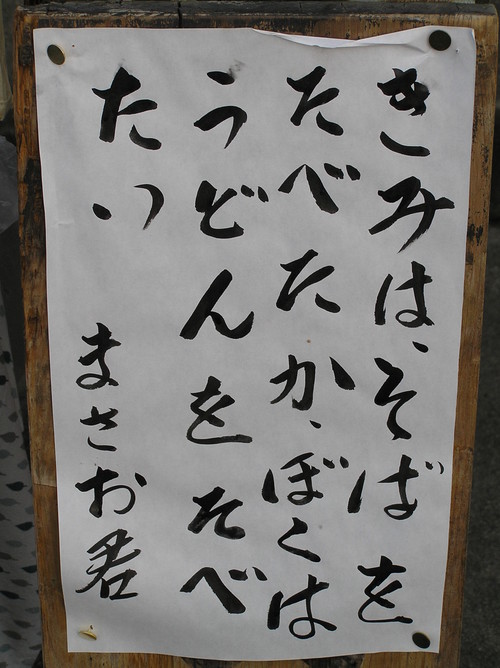 きみは、そばを
たべたか、ぼくは
うどんをたべ
たい
まさお君